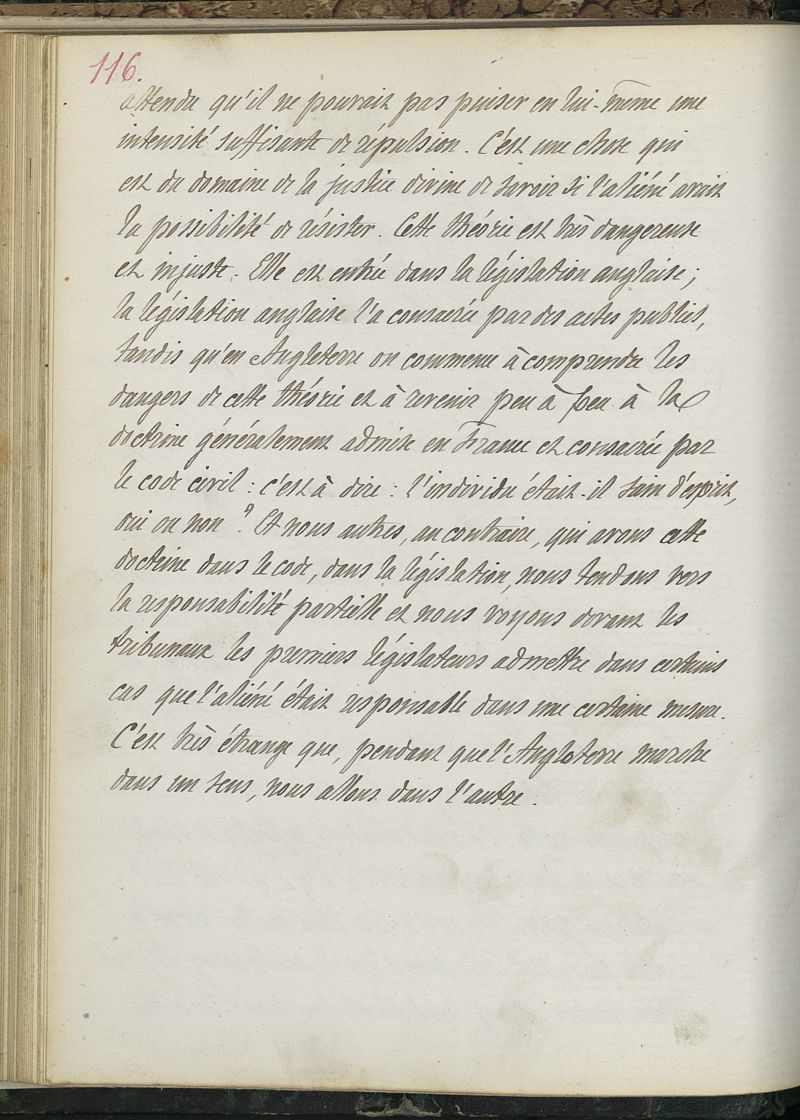 116.
attendu qu'il ne pouvait pas puiser en lui-même une
intensité suffisante de répulsion. C'est une chose qui
est du domaine de la justice divine de savoir si l'aliéné avait
la possibilité de résister. Cette théorie est très dangereuse
et injuste. Elle est entrée dans la législation anglaise;
la législation anglaise l'a consacrée par des actes publics,
tandis qu'en Angleterre on commence à comprendre les
dangers de cette théorie et à revenir peu à peu à la
doctrine généralement admise en France et consacrée par
le code civil : c'est à dire : l'individu était-il sain d'esprit,
oui ou non ? Et nous autres, au contraire, qui avons cette
doctrine dans le code, dans la législation, nous tendons vers
la responsabilité partielle et nous voyons devant les
tribunaux les premiers législateurs admettre dans certains
cas que l'aliéné était responsable dans une certaine mesure.
C'est très étrange que, pendant que l'Angleterre marche
dans un sens, nous allons dans l'autre.